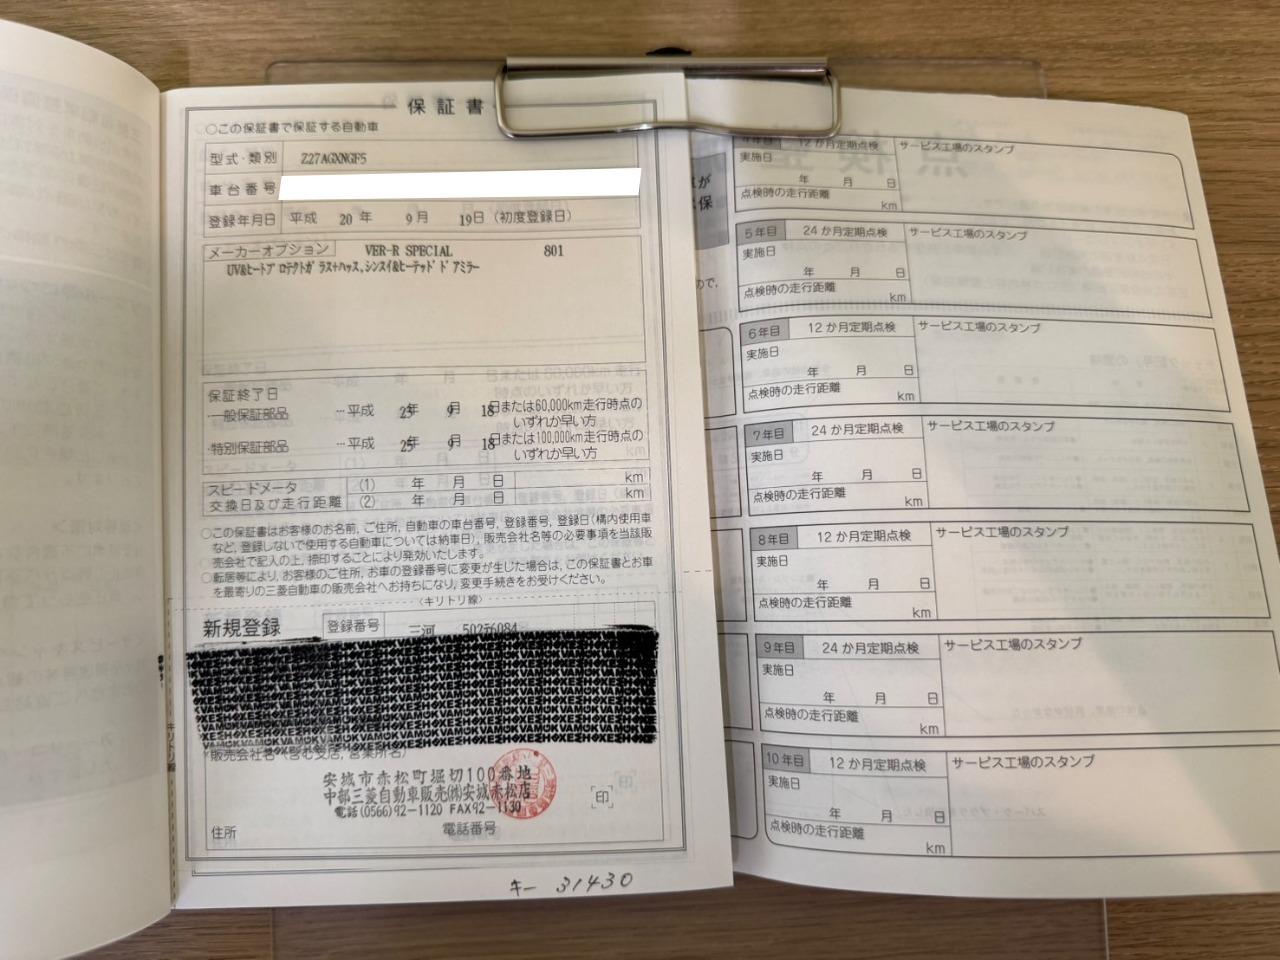 保証書
○この保証書で保証する自動車
型式・類別 Z27AGXNGF5
車台番号
登録年月日 平成 20年 9月 19日 (初度登録日)
メーカーオプション VER-R SPECIAL 801
UV&ヒートプロテクトガラス+ハッス,シンスイ&ヒーテッドドアミラー
保証終了日
・一般保証部品 …平成 25年 9月 18日または60,000km走行時点の
いずれか早い方
・特別保証部品 …平成 25年 9月 18日または100,000km走行時点の
いずれか早い方
スピードメータ (1) 年 月 日 km
交換日及び走行距離 (2) 年 月 日 km
○この保証書はお客様のお名前, ご住所, 自動車の車台番号, 登録番号, 登録日(構内使用車
など, 登録しないで使用する自動車については納車日), 販売会社名等の必要事項を当該販
売会社で記入の上, 捺印することにより発効いたします。
○転居等により, お客様のご住所, お車の登録番号に変更が生じた場合は, この保証書とお車
を最寄りの三菱自動車の販売会社へお持ちになり, 変更手続きをお受けください。
〈キリトリ線〉
新規登録 登録番号 三河
キリトリ線
販売会社名(含む支店, 営業所名)
安城市赤松町堀切100番地
中部三菱自動車販売(株)安城赤松店
電話(0566)92-1120 FAX92-1130
印
住所 電話番号
キー 31430
12か月定期点検 サービス工場のスタンプ
実施日
年 月 日
点検時の走行距離
km
5年目 24か月定期点検 サービス工場のスタンプ
実施日
年 月 日
点検時の走行距離
km
6年目 12か月定期点検 サービス工場のスタンプ
実施日
年 月 日
点検時の走行距離
km
7年目 24か月定期点検 サービス工場のスタンプ
実施日
年 月 日
点検時の走行距離
km
8年目 12か月定期点検 サービス工場のスタンプ
実施日
年 月 日
点検時の走行距離
km
9年目 24か月定期点検 サービス工場のスタンプ
実施日
年 月 日
点検時の走行距離
km
10年目 12か月定期点検 サービス工場のスタンプ
実施日
年 月 日
点検時の走行距離
km